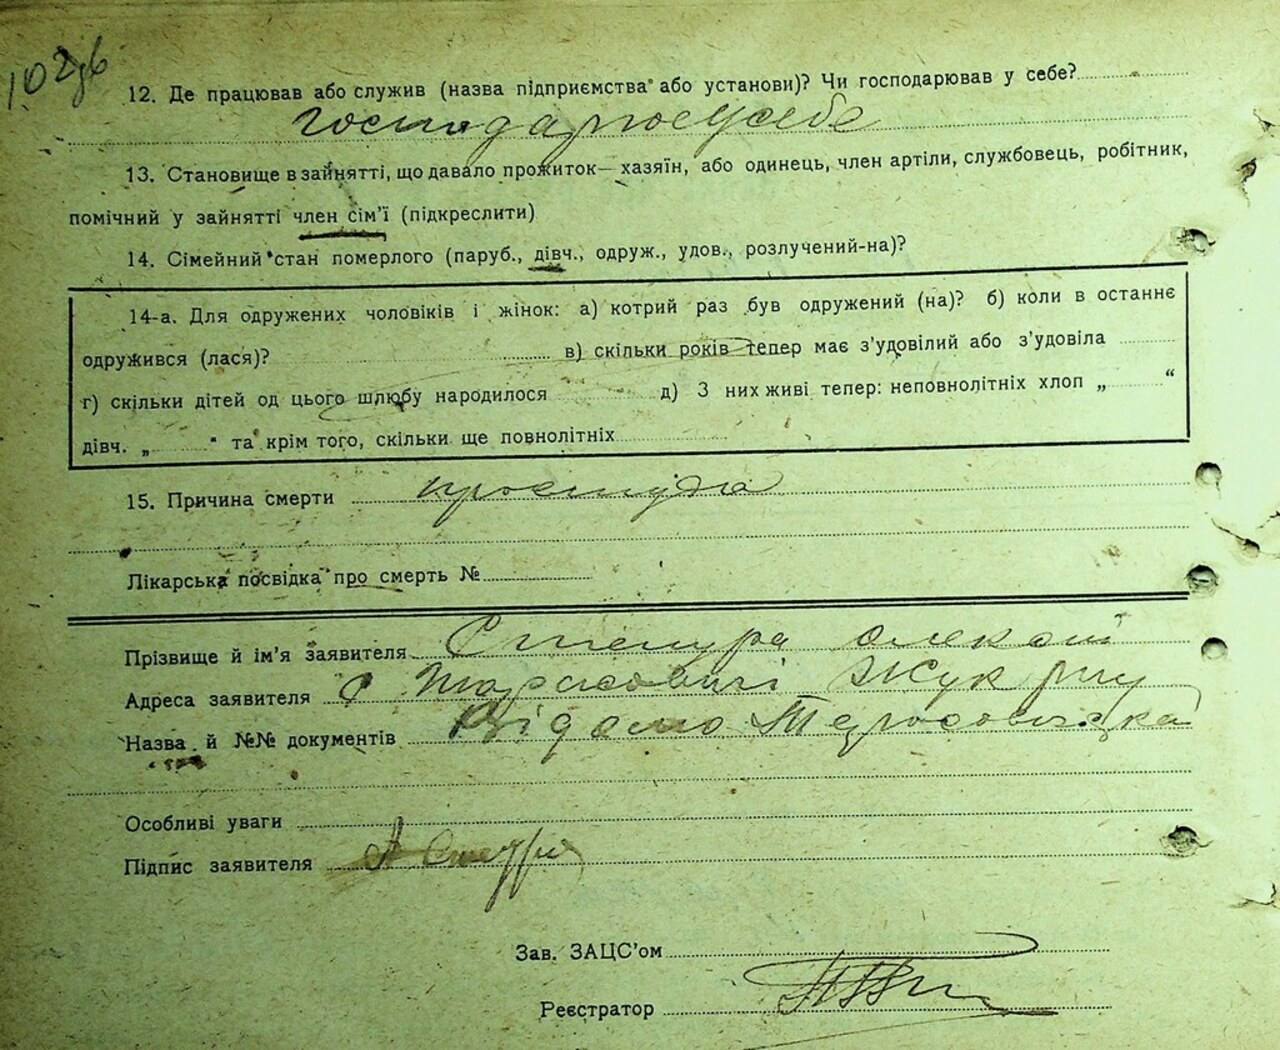 102зв
12. Де працював або служив (назва підприємства або установи)? Чи господарював у себе?
господарює у себе
13. Становище в зайнятті, що давало прожиток—хазяїн, або одинець, член артіли, службовець, робітник,
помічний у зайнятті член сім'ї (підкреслити)
14. Сімейний стан померлого (паруб., дівч., одруж., удов., розлучений-на)?
14-а. Для одружених чоловіків і жінок: а) котрий раз був одружений (на)? б) коли в останнє
одружився (лася)? в) скільки років тепер має з'удовілий або з'удовіла
г) скільки дітей од цього шлюбу народилося д) З них живі тепер: неповнолітніх хлоп „ “
дівч. „ “ та крім того, скільки ще повнолітніх
15. Причина смерти простуда
Лікарська посвідка про смерть №
Прізвище й ім'я заявителя
Адреса заявителя с Тарасовичі
Назва й №№ документів Відомо
Особливі уваги
Підпис заявителя
Зав. ЗАЦС'ом
Реєстратор